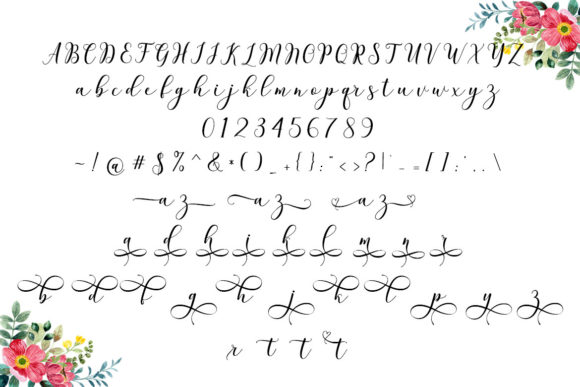 ABCDEFGHIJKLMNOPQRSTUVWXYZ
abcdefghijklmnopqrstuvwxyz
0123456789
~ ! @ # $ % ^ & * ( ) _ + { } : " < > ? | ` - = [ ] ; ' , . \
az az az
a d h i k l m n r
b d f g h j k t p y z
r t t t